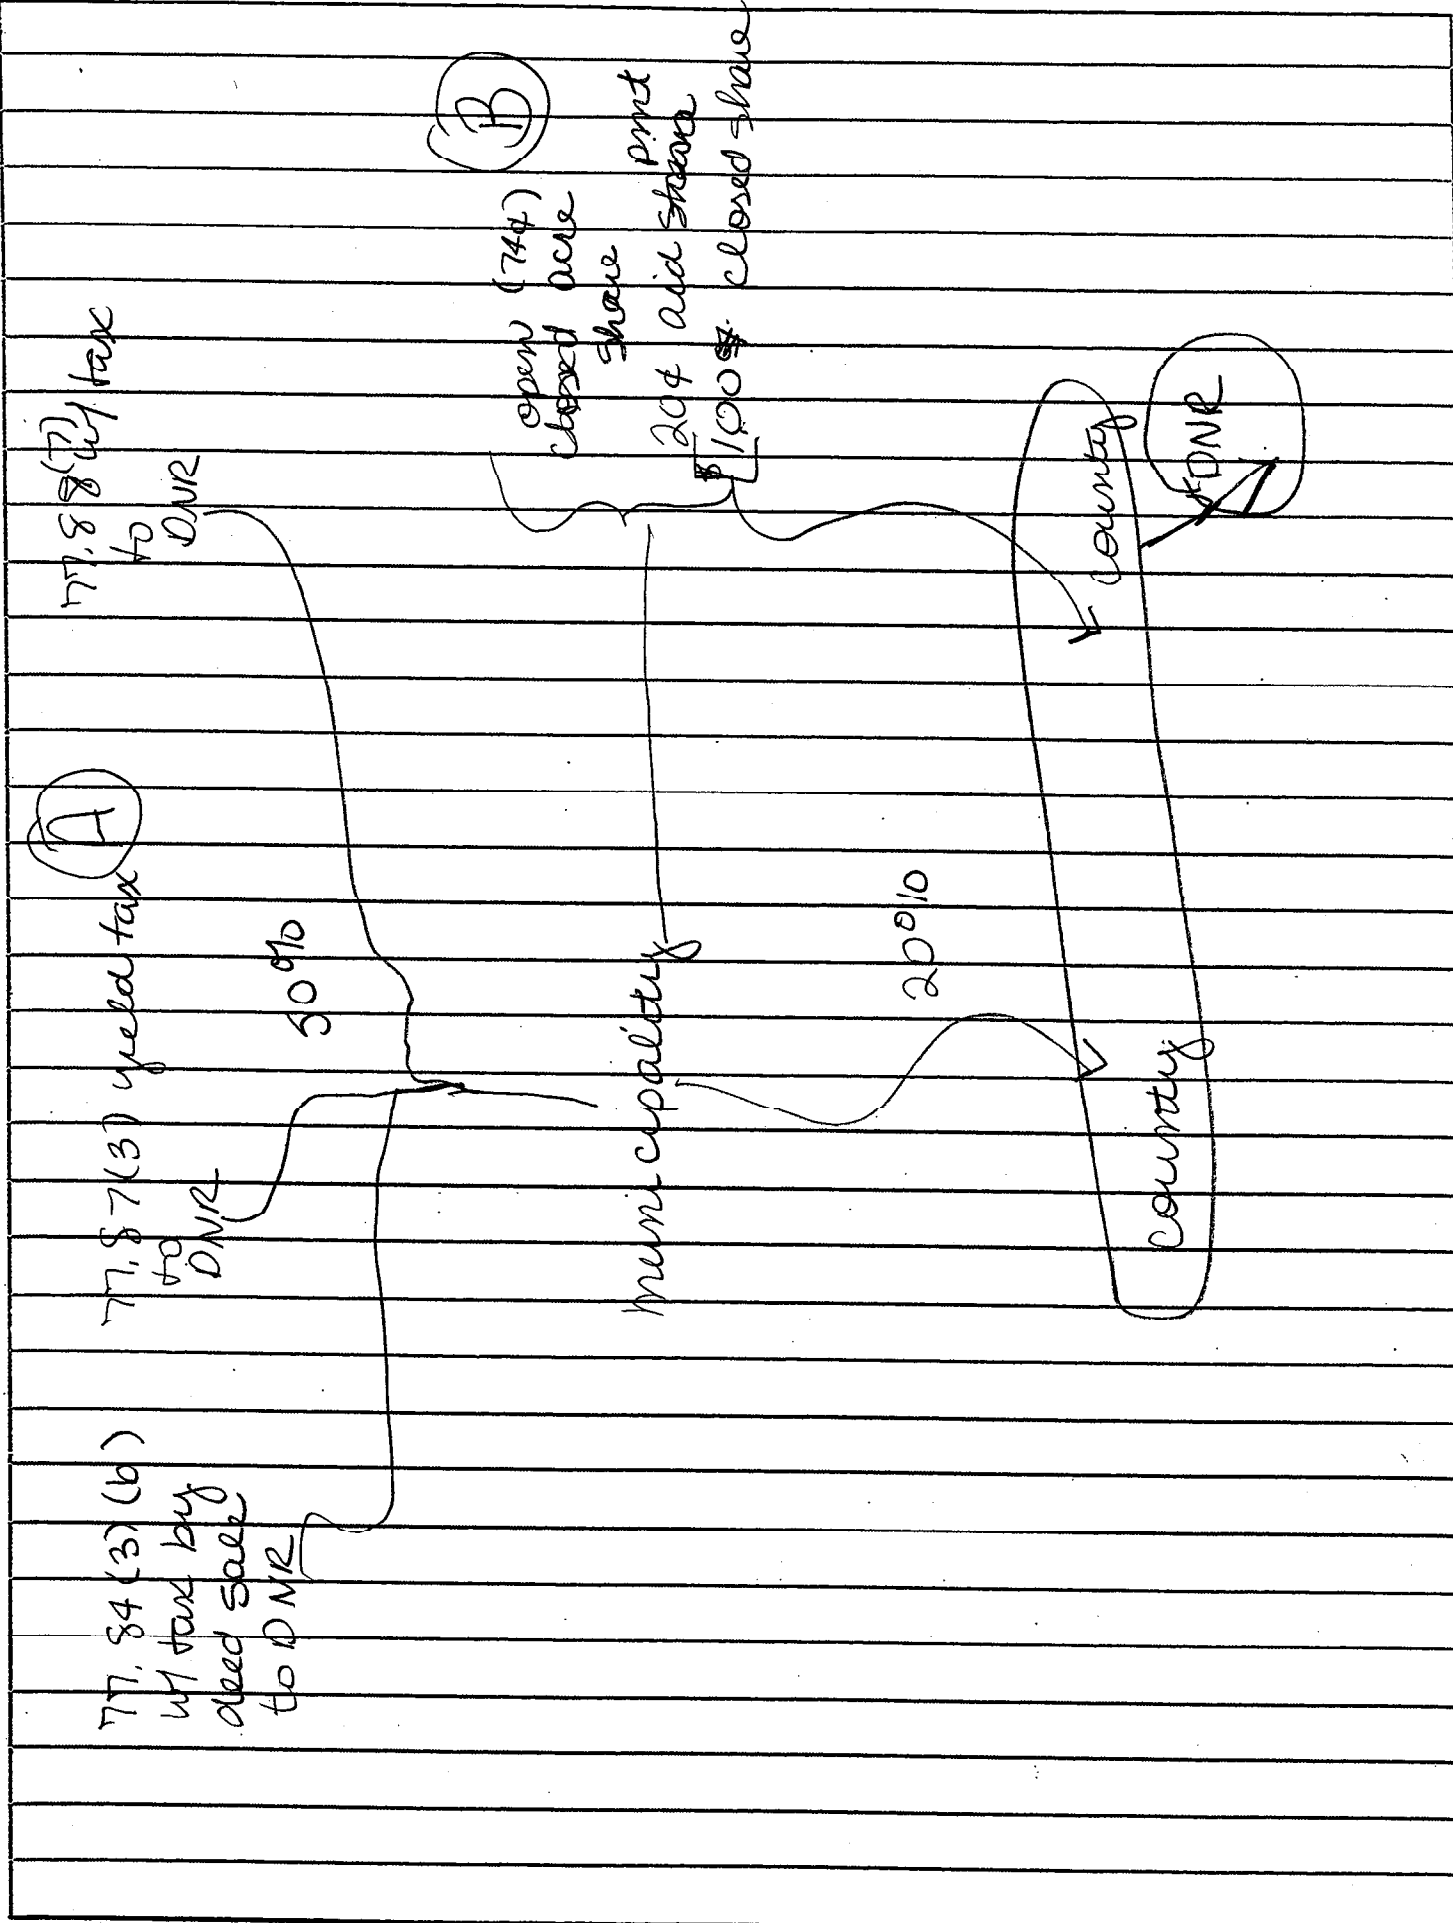 A
77.84(3)(b)
w/ tax by
deed sale
to DNR
77.87(3) yield tax
to
DNR
77.88(7)
w/ tax
to
DNR
50%
B
open (74¢)
closed acre
share
20¢ aid share pmt
$1.00 closed share
municipality
20%
county
county
DNR